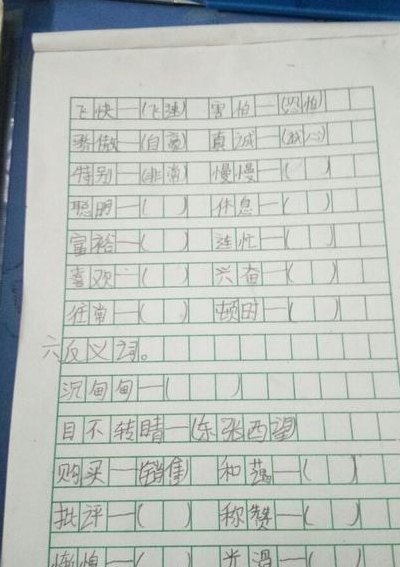 飞快—(飞速) 害怕—(恐怕)
骄傲—(自豪) 真诚—(热心)
特别—(非常) 慢慢—( )
聪明—( ) 休息—( )
富裕—( ) 连忙—( )
喜欢—( ) 兴奋—( )
往常—( ) 顿时—( )
六反义词。
沉甸甸—( )
目不转睛—(东张西望)
购买—(销售) 和蔼—( )
批评—( ) 称赞—( )
懒惰—( ) 光滑—( )